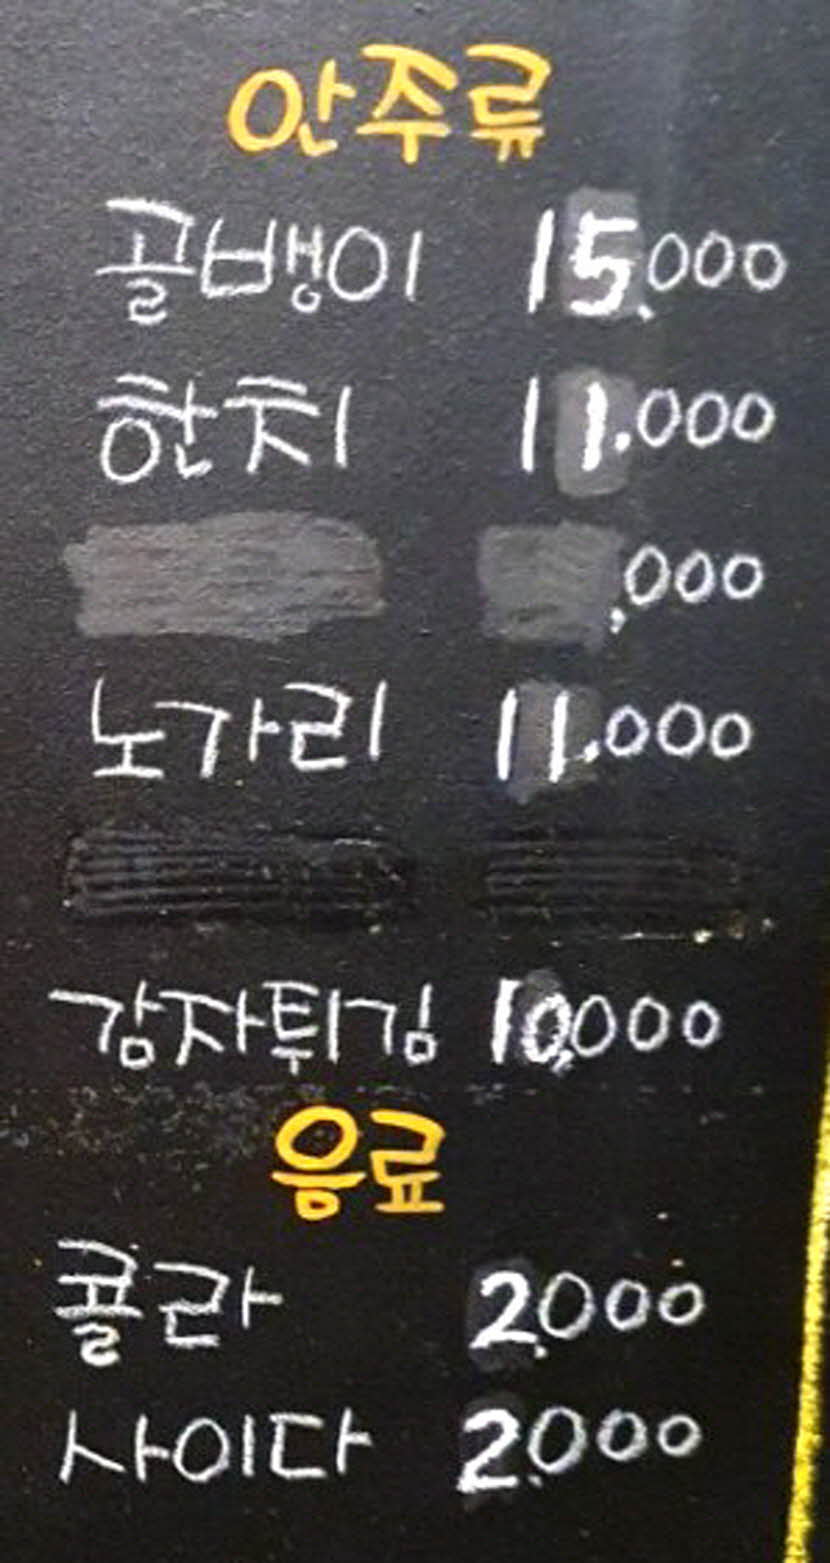 안주류
골뱅이 15,000
한치 11.000
,000
노가리 11.000
감자튀김 10,000
음료
콜라 2,000
사이다 2,000